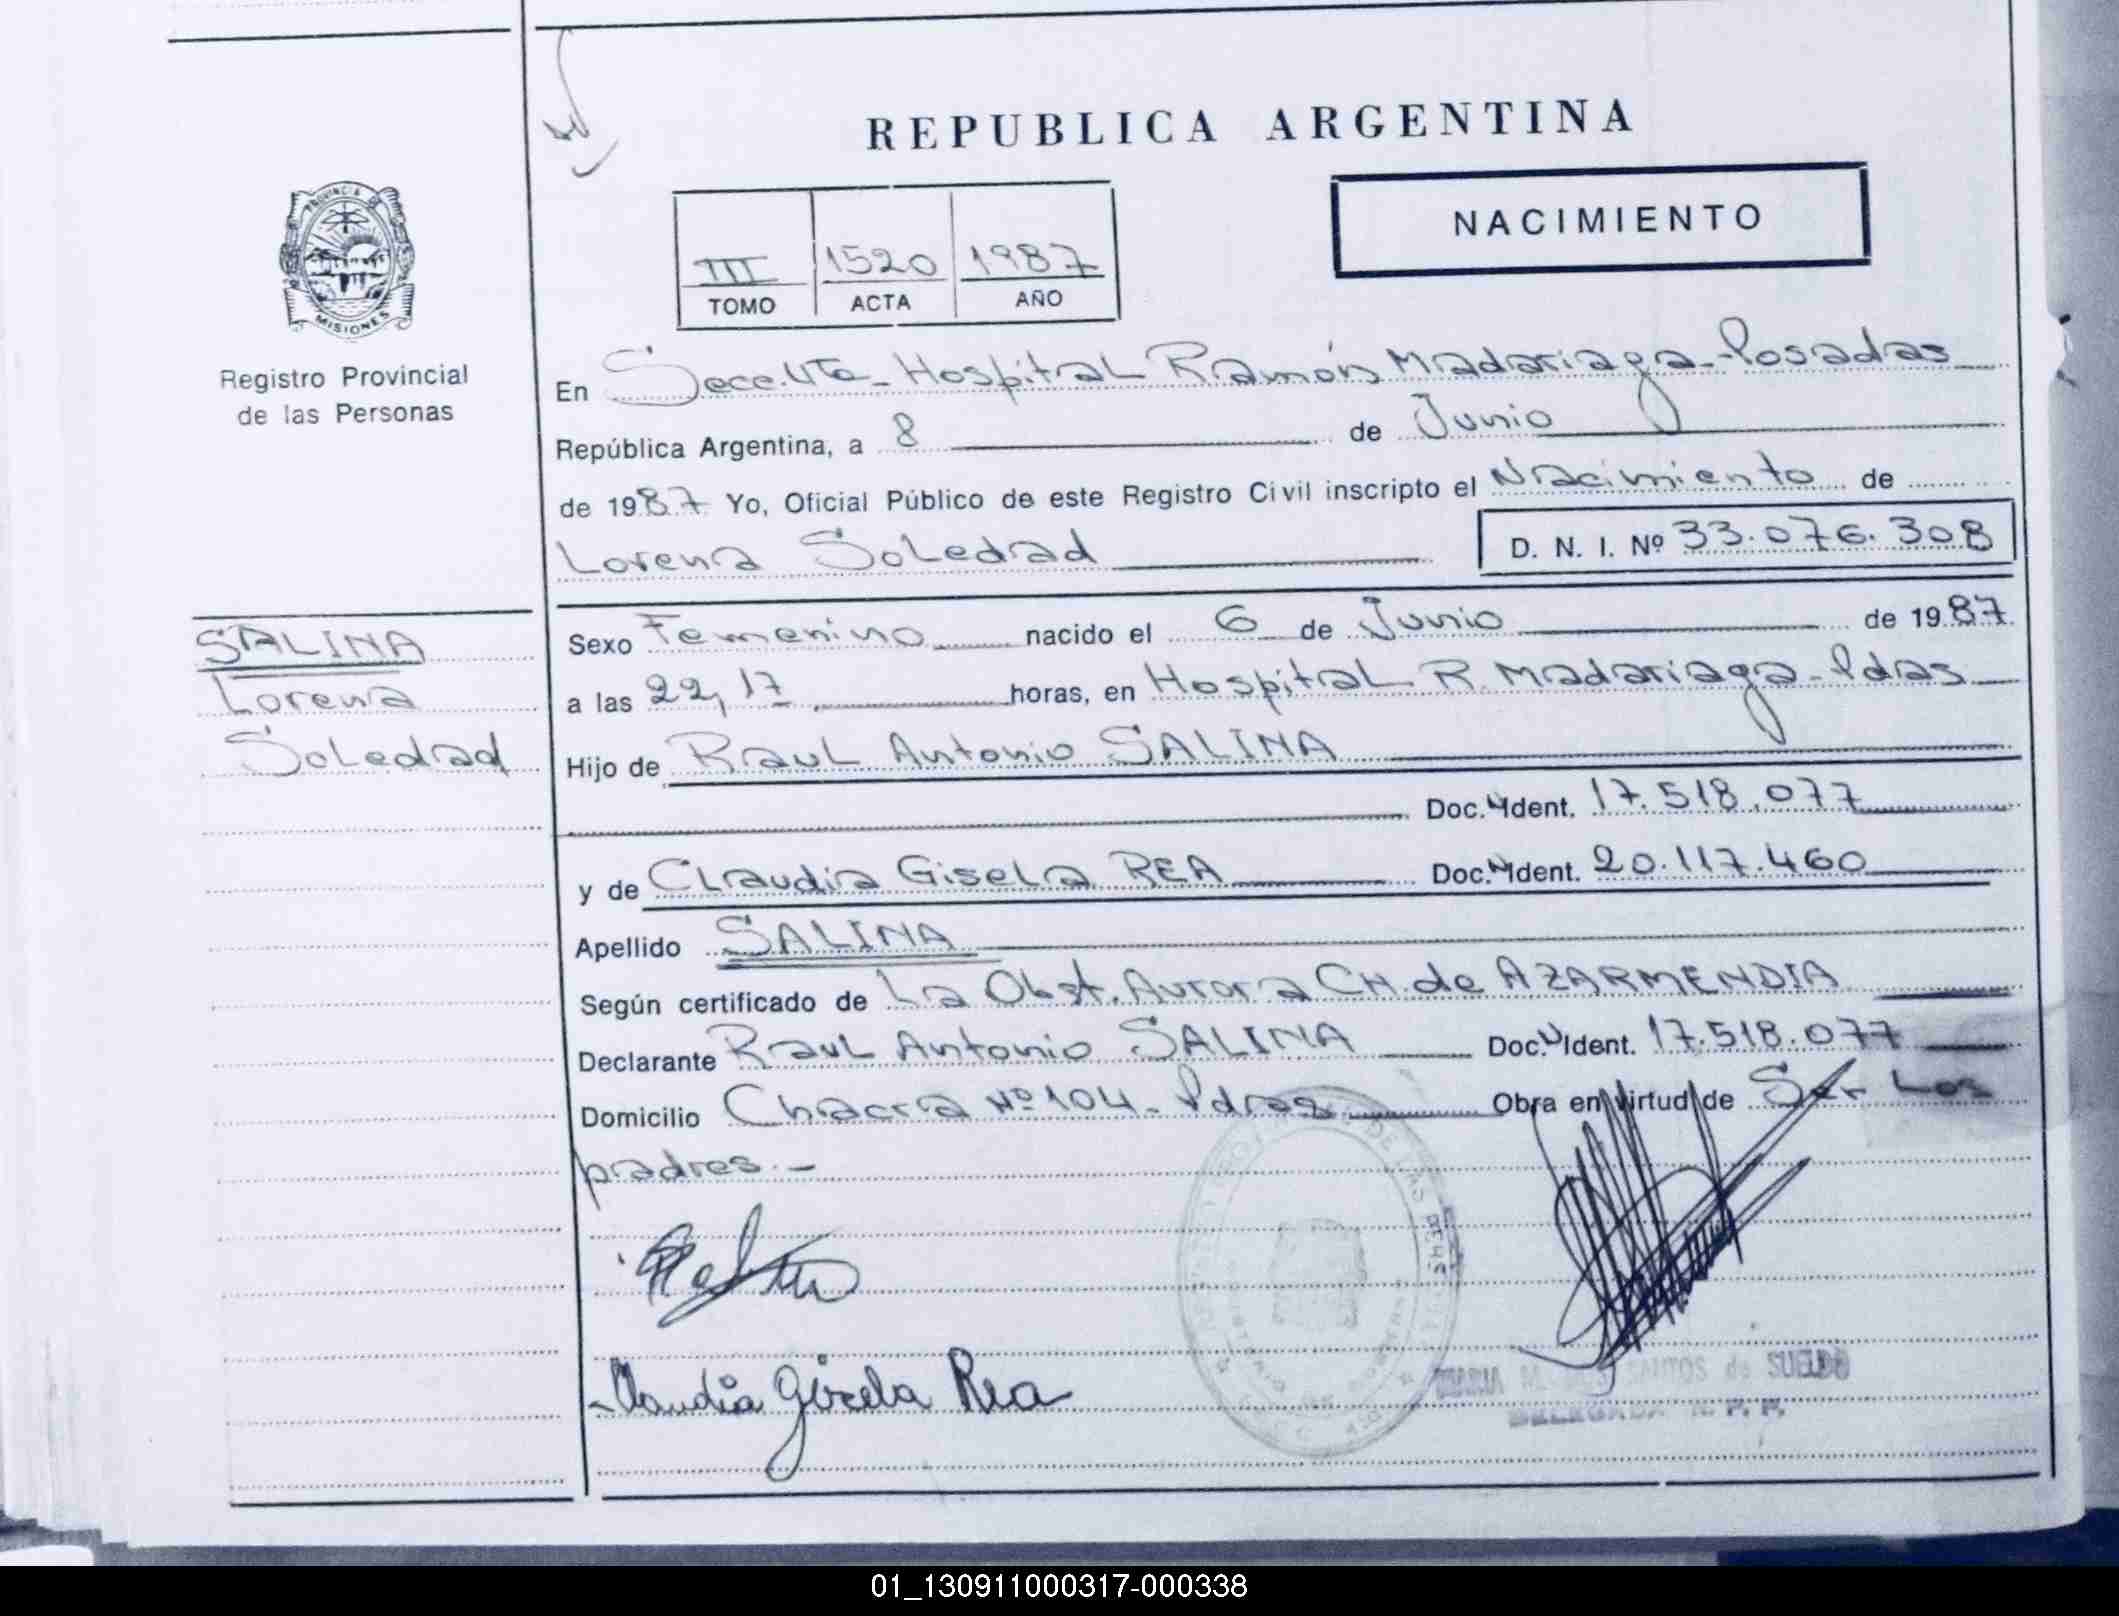 REPUBLICA ARGENTINA
NACIMIENTO
III 1520 1987
TOMO ACTA AÑO
PROVINCIA DE
MISIONES
Registro Provincial
de las Personas
En Secc. Hospital Ramón Madariaga - Posadas
República Argentina, a 8 de Junio
de 1987 Yo, Oficial Público de este Registro Civil inscripto el Nacimiento de
Lorena Soledad D. N. I. Nº 33.076.308
SALINA
Lorena
Soledad
Sexo Femenino nacido el 6 de Junio de 1987
a las 22,17 horas, en Hospital R. Madariaga - Pdas
Hijo de Raul Antonio SALINA
Doc. Ident. 17.518.077
y de Claudia Gisela REA Doc. Ident. 20.117.460
Apellido SALINA
Según certificado de La Obst. Aurora CH. de AZARMENDIA
Declarante Raul Antonio SALINA Doc. Ident. 17.518.077
Domicilio Chacra Nº 104 - Pdas Obra en virtud de Ser Los
padres.-
Claudia Gisela Rea
DE LAS
de SUELDO
R. P. P.
01_130911000317-000338